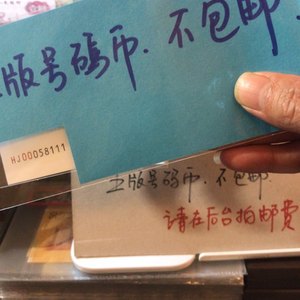 版号碼币.不包邮.
HJ00058111
版号碼币.不包邮.
请在后台拍邮费